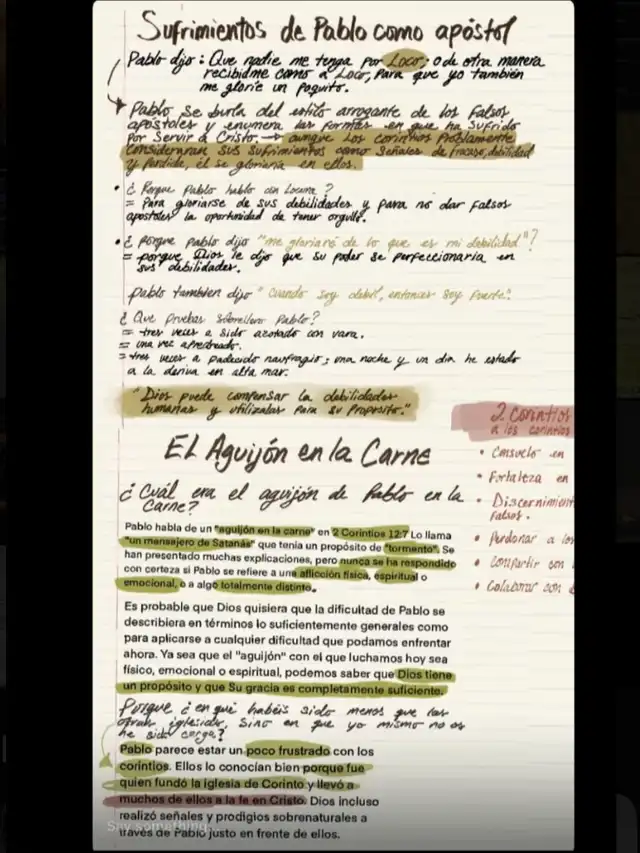 Sufrimientos de Pablo como apóstol
Pablo dijo: Que nadie me tenga por Loco; o de otra manera
recibidme como a Loco, para que yo también
me gloríe un poquito.
Pablo se burla del estilo arrogante de los falsos
apóstoles y enumera las formas en que ha sufrido
por servir a Cristo → aunque los corintios Problamente
consideraran sus sufrimientos como señales de fracaso, debilidad
y perdida, él se gloriaria en ellos.
• ¿ Porque Pablo hablo con Locura ?
= Para gloriarse de sus debilidades y para no dar falsos
apostoles la oportunidad de tener orgullo.
• ¿ Porque pablo dijo "me gloriaré de lo que es mi debilidad"?
= porque Dios le dijo que su poder se perfeccionaria en
sus debilidades.
pablo tambien dijo "Cuando soy debil, entonces soy fuerte".
¿ Que pruebas sobrellevo Pablo?
= tres veces a sido azotado con vara.
= una vez apedreado.
= tres veces a padecido naufragio; una noche y un dia he estado
a la deriva en alta mar.
"Dios puede compensar la debilidades
humanas y utilizalas para su proposito."
2 Corintios
a los corintios
• Consuelo en
• Fortaleza en
• Discernimient
falsos.
• Perdonar a los
• Compartir con
• Colaborar con
EL Aguijón en la Carne
¿Cuál era el aguijón de Pablo en la
carne?
Pablo habla de un "aguijón en la carne" en 2 Corintios 12:7 Lo llama
"un mensajero de Satanás" que tenía un propósito de "tormento". Se
han presentado muchas explicaciones, pero nunca se ha respondido
con certeza si Pablo se refiere a una aflicción física, espiritual o
emocional, o a algo totalmente distinto.
Es probable que Dios quisiera que la dificultad de Pablo se
describiera en términos lo suficientemente generales como
para aplicarse a cualquier dificultad que podamos enfrentar
ahora. Ya sea que el "aguijón" con el que luchamos hoy sea
físico, emocional o espiritual, podemos saber que Dios tiene
un propósito y que Su gracia es completamente suficiente.
Porque ¿en qué habéis sido menos que las
otras iglesias, sino en que yo mismo no os
he sido carga?
Pablo parece estar un poco frustrado con los
corintios. Ellos lo conocían bien porque fue
quien fundó la iglesia de Corinto y llevó a
muchos de ellos a la fe en Cristo. Dios incluso
realizó señales y prodigios sobrenaturales a
través de Pablo justo en frente de ellos.
Say something...